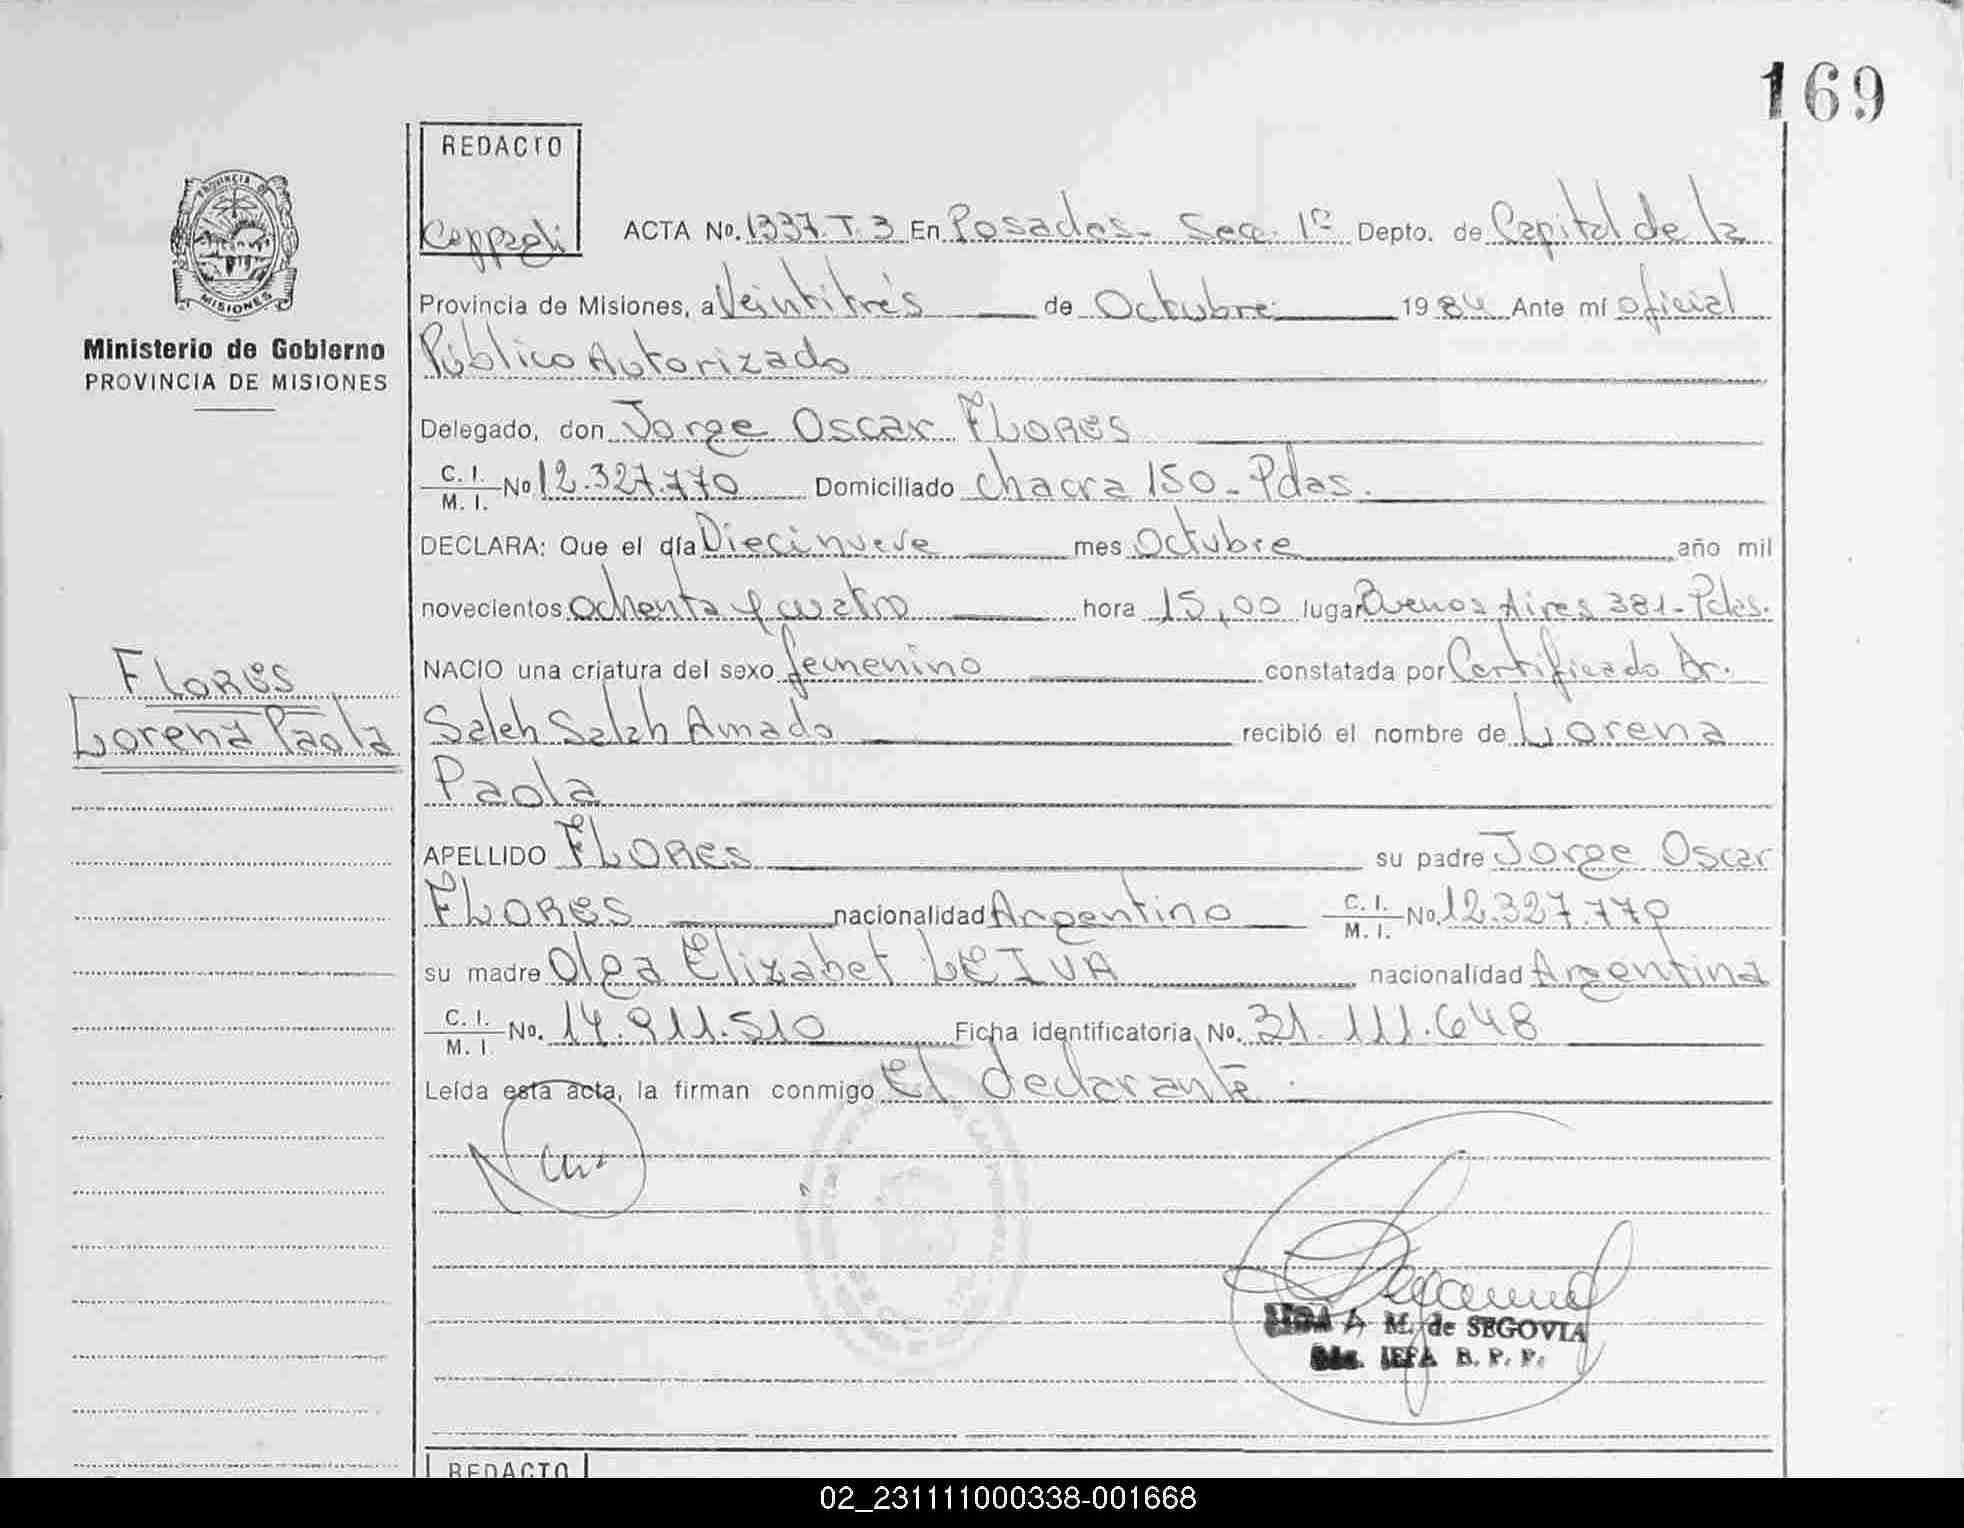 169
REDACTO
ACTA No. 1337 T. 3 En Posadas - Secc. 1ª Depto. de Capital de la
PROVINCIA DE MISIONES
Provincia de Misiones, a Veintitrés de Octubre 1984 Ante mí oficial
Ministerio de Gobierno
Público Autorizado
PROVINCIA DE MISIONES
Delegado, don Jorge Oscar FLORES
C. I. M. I. No 12.327.770 Domiciliado chacra 150 - Pdas.
DECLARA: Que el día Diecinueve mes Octubre año mil
novecientos ochenta y cuatro hora 15,00 lugar Buenos Aires 381 - Pdas.
FLORES
NACIO una criatura del sexo femenino constatada por Certificado Dr.
Lorena Paola
Saleh Salah Amado recibió el nombre de Lorena
Paola
APELLIDO FLORES su padre Jorge Oscar
FLORES nacionalidad Argentino C. I. M. I. No. 12.327.770
su madre Olga Elizabet LEIVA nacionalidad Argentina
C. I. M. I. No. 14.911.510 Ficha identificatoria No. 31.111.648
Leída esta acta, la firman conmigo El declarante.
A M. de SEGOVIA
JEFA B. P. P.
REDACTO
02_231111000338-001668